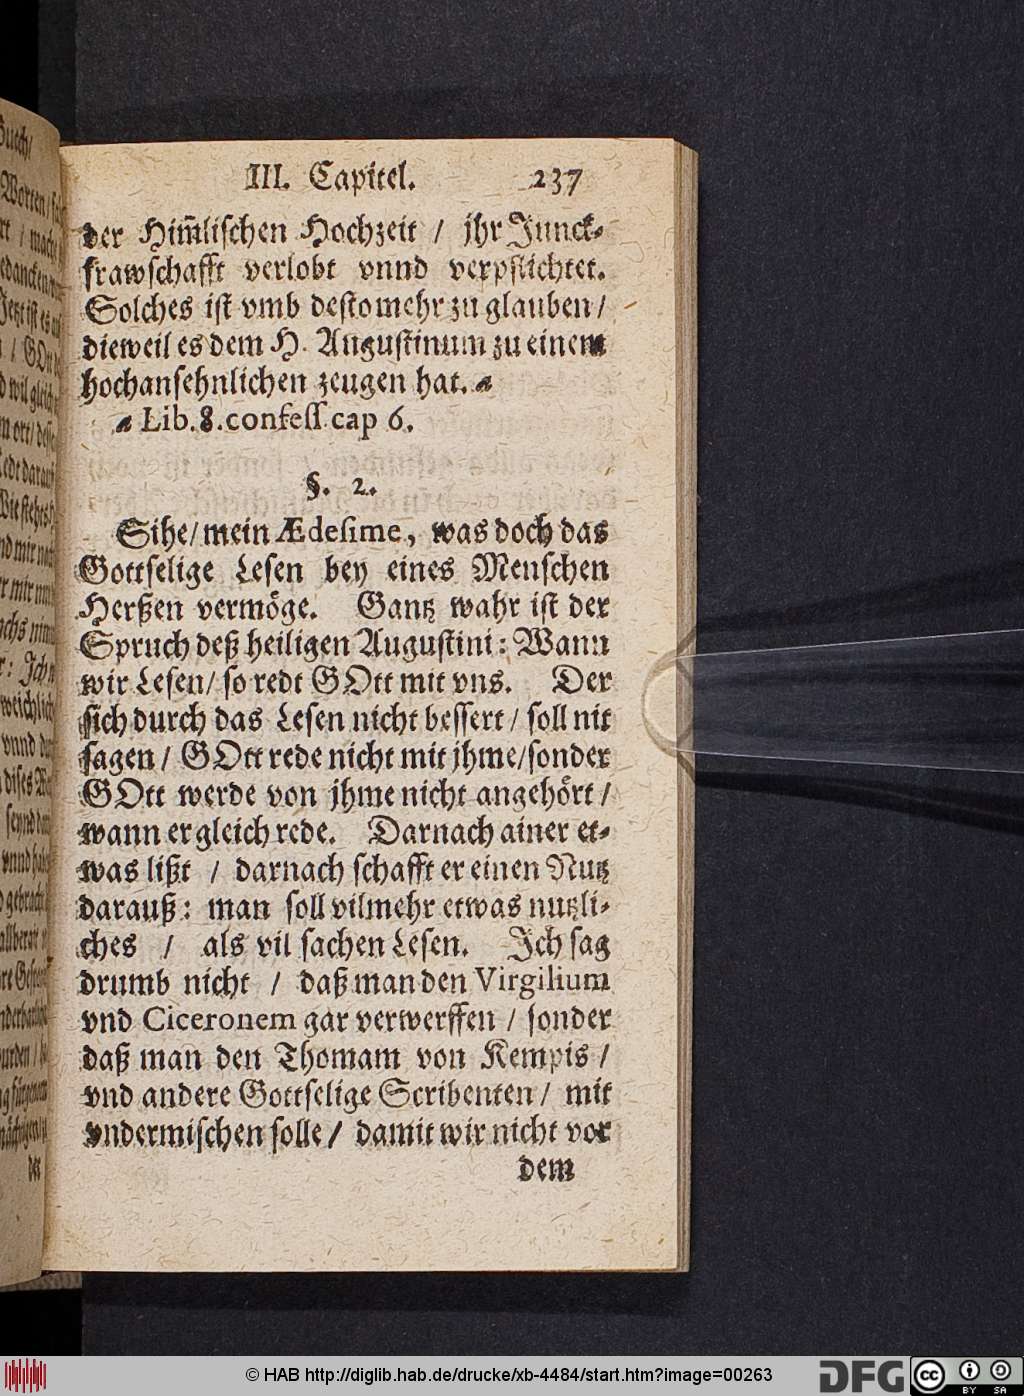 III. Capitel. 237
der Him̃lischen Hochzeit / jhr Junck-
frawschafft verlobt vnnd verpflichtet.
Solches ist vmb destomehr zu glauben /
dieweil es dem H. Augustinum zu einem
hochansehnlichen zeugen hat. a
a Lib. 8. confess. cap 6.
§. 2.
Sihe / mein Ædesime, was doch das
Gottselige Lesen bey eines Menschen
Herßen vermöge. Gantz wahr ist der
Spruch deß heiligen Augustini: Wann
wir Lesen / so redt GOtt mit vns. Der
sich durch das Lesen nicht bessert / soll nit
sagen / GOtt rede nicht mit jhme / sonder
GOtt werde von jhme nicht angehört /
wann er gleich rede. Darnach ainer et-
was lißt / darnach schafft er einen Nutz
darauß: man soll vilmehr etwas nutzli-
ches / als vil sachen Lesen. Ich sag
drumb nicht / daß man den Virgilium
vnd Ciceronem gar verwerffen / sonder
daß man den Thomam von Kempis /
vnd andere Gottselige Scribenten / mit
vndermischen solle / damit wir nicht vor
dem
© HAB http://diglib.hab.de/drucke/xb-4484/start.htm?image=00263
DFG
cc BY SA